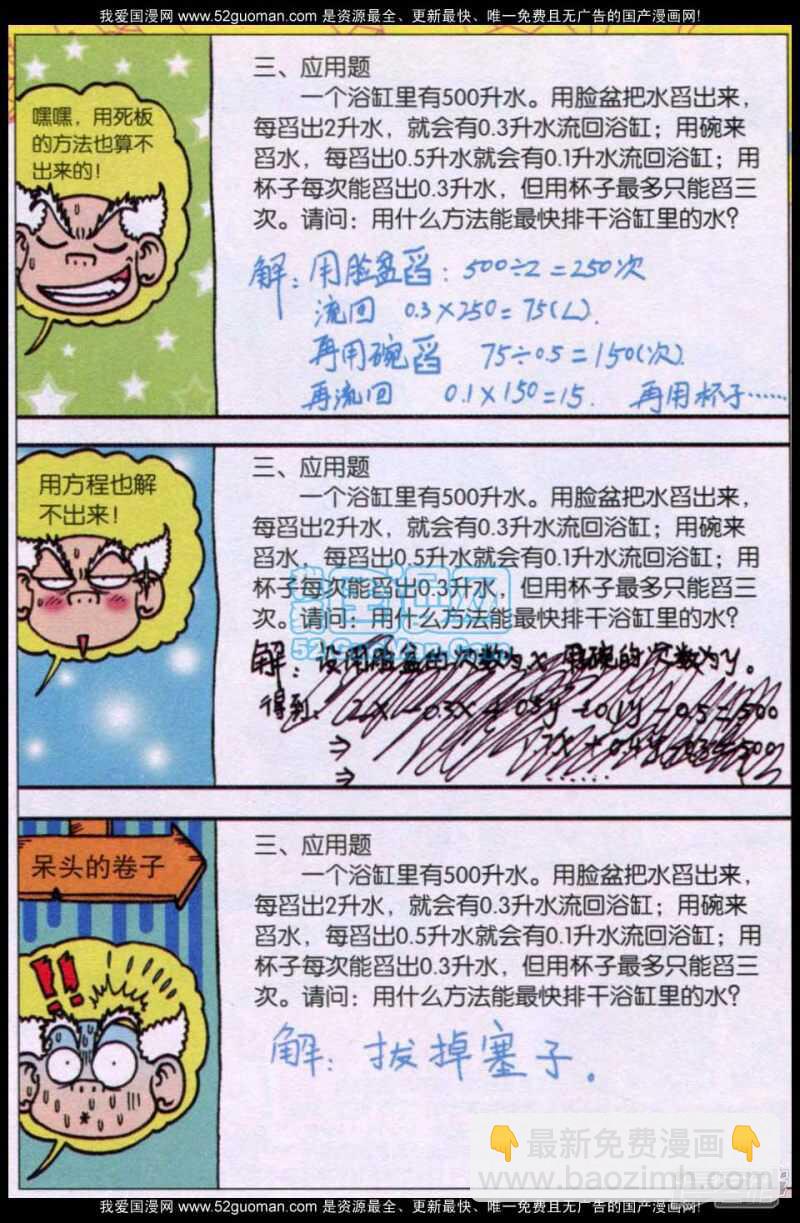 我爱国漫网 www.52guoman.com 是资源最全、更新最快、唯一免费且无广告的国产漫画网!
嘿嘿，用死板
的方法也算不
出来的！
三、应用题
一个浴缸里有500升水。用脸盆把水舀出来，
每舀出2升水，就会有0.3升水流回浴缸；用碗来
舀水，每舀出0.5升水就会有0.1升水流回浴缸；用
杯子每次能舀出0.3升水，但用杯子最多只能舀三
次。请问：用什么方法能最快排干浴缸里的水？
解：用脸盆舀：500÷2=250次
流回 0.3×250=75(L).
再用碗舀 75÷0.5=150(次)
再流回 0.1×150=15. 再用杯子……
用方程也解
不出来！
三、应用题
一个浴缸里有500升水。用脸盆把水舀出来，
每舀出2升水，就会有0.3升水流回浴缸；用碗来
舀水，每舀出0.5升水就会有0.1升水流回浴缸；用
杯子每次能舀出0.3升水，但用杯子最多只能舀三
次。请问：用什么方法能最快排干浴缸里的水？
52GuoMan.Com
解：设用脸盆出次数为x 用碗的次数为y。
得到：2x-0.3x+0.5y-0.1y-0.5=500
⇒
⇒ ……
呆头的卷子
三、应用题
一个浴缸里有500升水。用脸盆把水舀出来，
每舀出2升水，就会有0.3升水流回浴缸；用碗来
舀水，每舀出0.5升水就会有0.1升水流回浴缸；用
杯子每次能舀出0.3升水，但用杯子最多只能舀三
次。请问：用什么方法能最快排干浴缸里的水？
!!
解：拔掉塞子.
最新免费漫画
www.baozimh.com
我爱国漫网 www.52guoman.com 是资源最全、更新最快、唯一免费且无广告的国产漫画网!